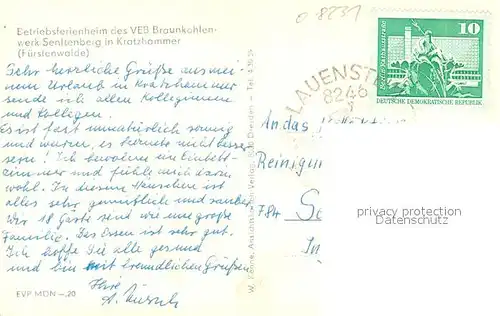 Betriebsferienheim des VEB Braunkohlen-
werk Senftenberg in Kratzhammer
(Fürstenwalde)
Sehr herzliche Grüße aus mei-
nem Urlaub in Kratzhammer
sende ich allen Kolleginnen
und Kollegen.
Es ist fast unnatürlich sonnig
und warm, es könnte nicht bes-
sern! Ich bewohne ein Einbett-
zimmer und fühle mich darin
wohl. In diesem Häuschen ist
alles sehr gemütlich und sauber.
Wir 18 Gäste sind wie eine große
Familie. Das Essen ist sehr gut.
Ich hoffe Sie alle gesund
und bin mit freundlichen Grüßen
Ihre
A.
EVP MDN -,20
8231
LAUENST
8246
1
10
DEUTSCHE DEMOKRATISCHE REPUBLIK
An das
Reinigun
784 Se
In
privacy protection
Datenschutz